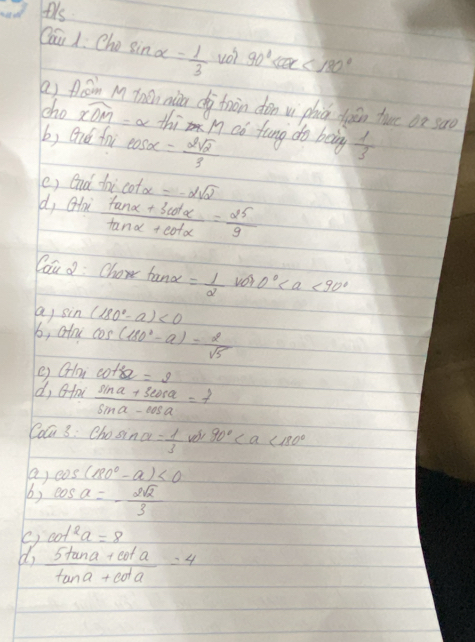 Đ/s
Câu 1: Cho sin α = 1/3 với 90° < α < 180°
a) Điểm M trên nửa đg tròn đơn vị phía trên trục Ox sao
cho xOM = α thì M có tung độ bằng 1/3
b) Giá trị cosα = 2√2/3
c) Giá trị cotα = -2√2
d) Gtri (tanα + 3cotα)/(tanα + cotα) = 25/9
Câu 2: Cho tanα = 1/2 với 0° < a < 90°
a) sin (180° - a) < 0
b) Gtri cos (180° - a) = 2/√5
c) Gtri cot a = 2
d) Gtri (sina + 3cosa)/(sina - cosa) = 7
Câu 3: Cho sina = 1/3 với 90° < a < 180°
a) cos (180° - a) < 0
b) cos a = - 2√2/3
c) cot²a = 8
d) (5tana + cot a)/(tana + cota) = 4